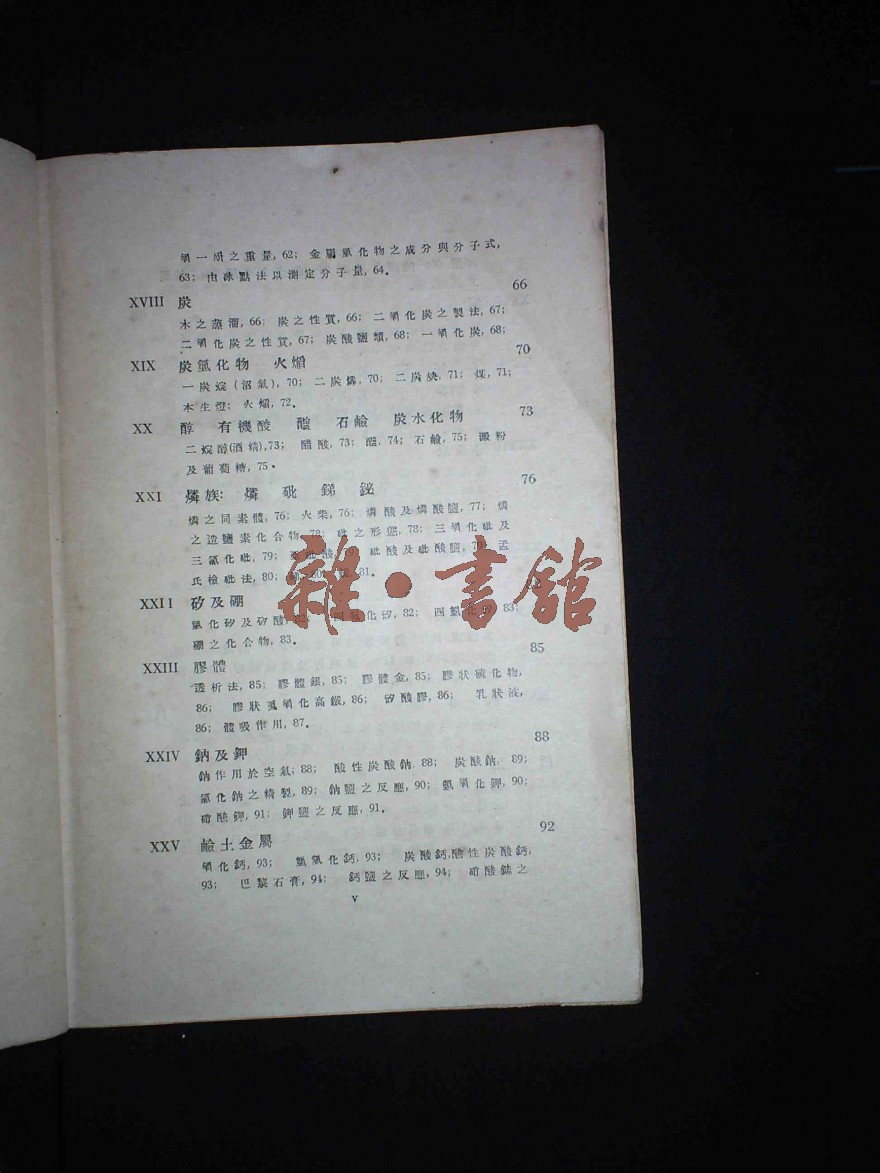 氧一研之重量, 62; 金屬氫化物之成分與分子式,
63; 由冰點法以測定分子量, 64.
66
XVIII 炭
木之蒸溜, 66; 炭之性質, 66; 二氧化炭之製法, 67;
二氧化炭之性質, 67; 炭酸鹽類, 68; 一氧化炭, 68;
XIX 炭氫化物 火焰 70
一炭烷 (沼氣), 70; 二炭烯, 70; 二炭炔, 71; 煤, 71;
本生燈; 火焰, 72.
XX 醇 有機酸 醯 石鹼 炭水化物 73
二烷醇(酒精), 73; 醋酸, 73; 醯, 74; 石鹼, 75; 澱粉
及葡萄糖, 75.
XXI 燐族: 燐 砒 銻 鉍 76
燐之同素體, 76; 火柴, 76; 燐酸及燐酸鹽, 77; 燐
之造鹽素化合物, 78; 砒之形態, 78; 三氧化砒及
三氯化砒, 79; 砒酸及砒酸鹽, 孟
氏檢砒法, 80; 81.
XXII 矽及硼
氧化矽及矽酸, 化矽, 82; 四氫化 83;
硼之化合物, 83.
XXIII 膠體 85
透析法, 85; 膠體銀, 85; 膠體金, 85; 膠狀硫化物,
86; 膠狀氫氧化高鐵, 86; 矽酸膠, 86; 乳狀液,
86; 體吸作用, 87.
XXIV 鈉及鉀 88
鈉作用於空氣, 88; 酸性炭酸鈉, 88; 炭酸鈉, 89;
氯化鈉之精製, 89; 鈉鹽之反應, 90; 氫氧化鉀, 90;
硝酸鉀, 91; 鉀鹽之反應, 91.
XXV 鹼土金屬 92
氧化鈣, 93; 氫氧化鈣, 93; 炭酸鈣, 酸性炭酸鈣,
93; 巴黎石膏, 94; 鈣鹽之反應, 94; 硝酸鍶之
V
雜·書館